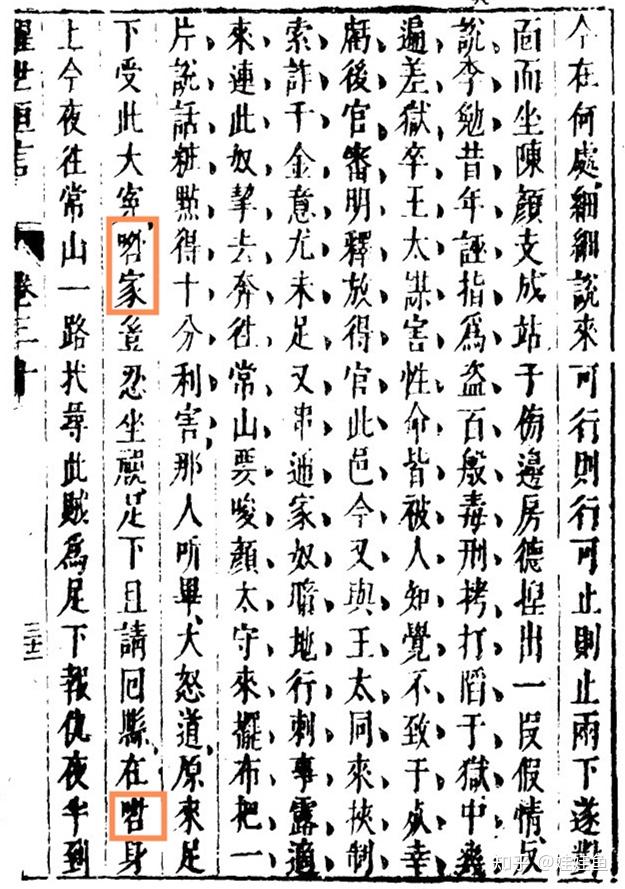 今在何處細細說來可行則行可止則止兩下遂對
面而坐陳顏支成站于傍邊房德捏出一段假情反
說李勉昔年誣指爲盜百般毒刑拷打陷于獄中幾
遍差獄卒王太謀害性命皆被人知覺不致于死幸
虧後官審明釋放得官此邑今又與王太同來挾制
索詐千金意尤未足又串通家奴暗地行刺事露適
來連此奴挈去奔徃常山要唆顏太守來擺布把一
片說話粧點得十分利害那人听畢大怒道原來足
下受此大寃喒家豈忍坐視足下且請回縣在喒身
上今夜徃常山一路找尋此賊爲足下報仇夜半到
醒世恒言 卷三十
知乎 @娃娃鱼